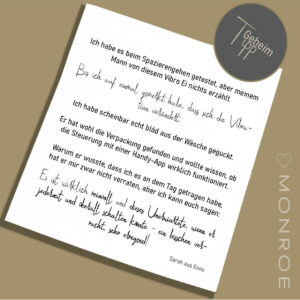 Geheim
Tipp
Ich habe es beim Spazierengehen getestet, aber meinem
Mann von diesem Vibro Ei nichts erzählt.
Bis ich auf einmal gemerkt habe, dass sich die Vibra-
tion verändert.
Ich habe scheinbar echt blöd aus der Wäsche geguckt.
Er hat wohl die Verpackung gefunden und wollte wissen, ob
die Steuerung mit einer Handy-App wirklich funktioniert.
Warum er wusste, dass ich es an dem Tag getragen habe,
hat er mir zwar nicht verraten, aber ich kann euch sagen:
Es ist wirklich reizvoll und diese Ungewissheit, wenn er
jederzeit und überall schalten könnte - ein bisschen ver-
rucht, sehr erregend!
Sarah aus Enns
MONROE